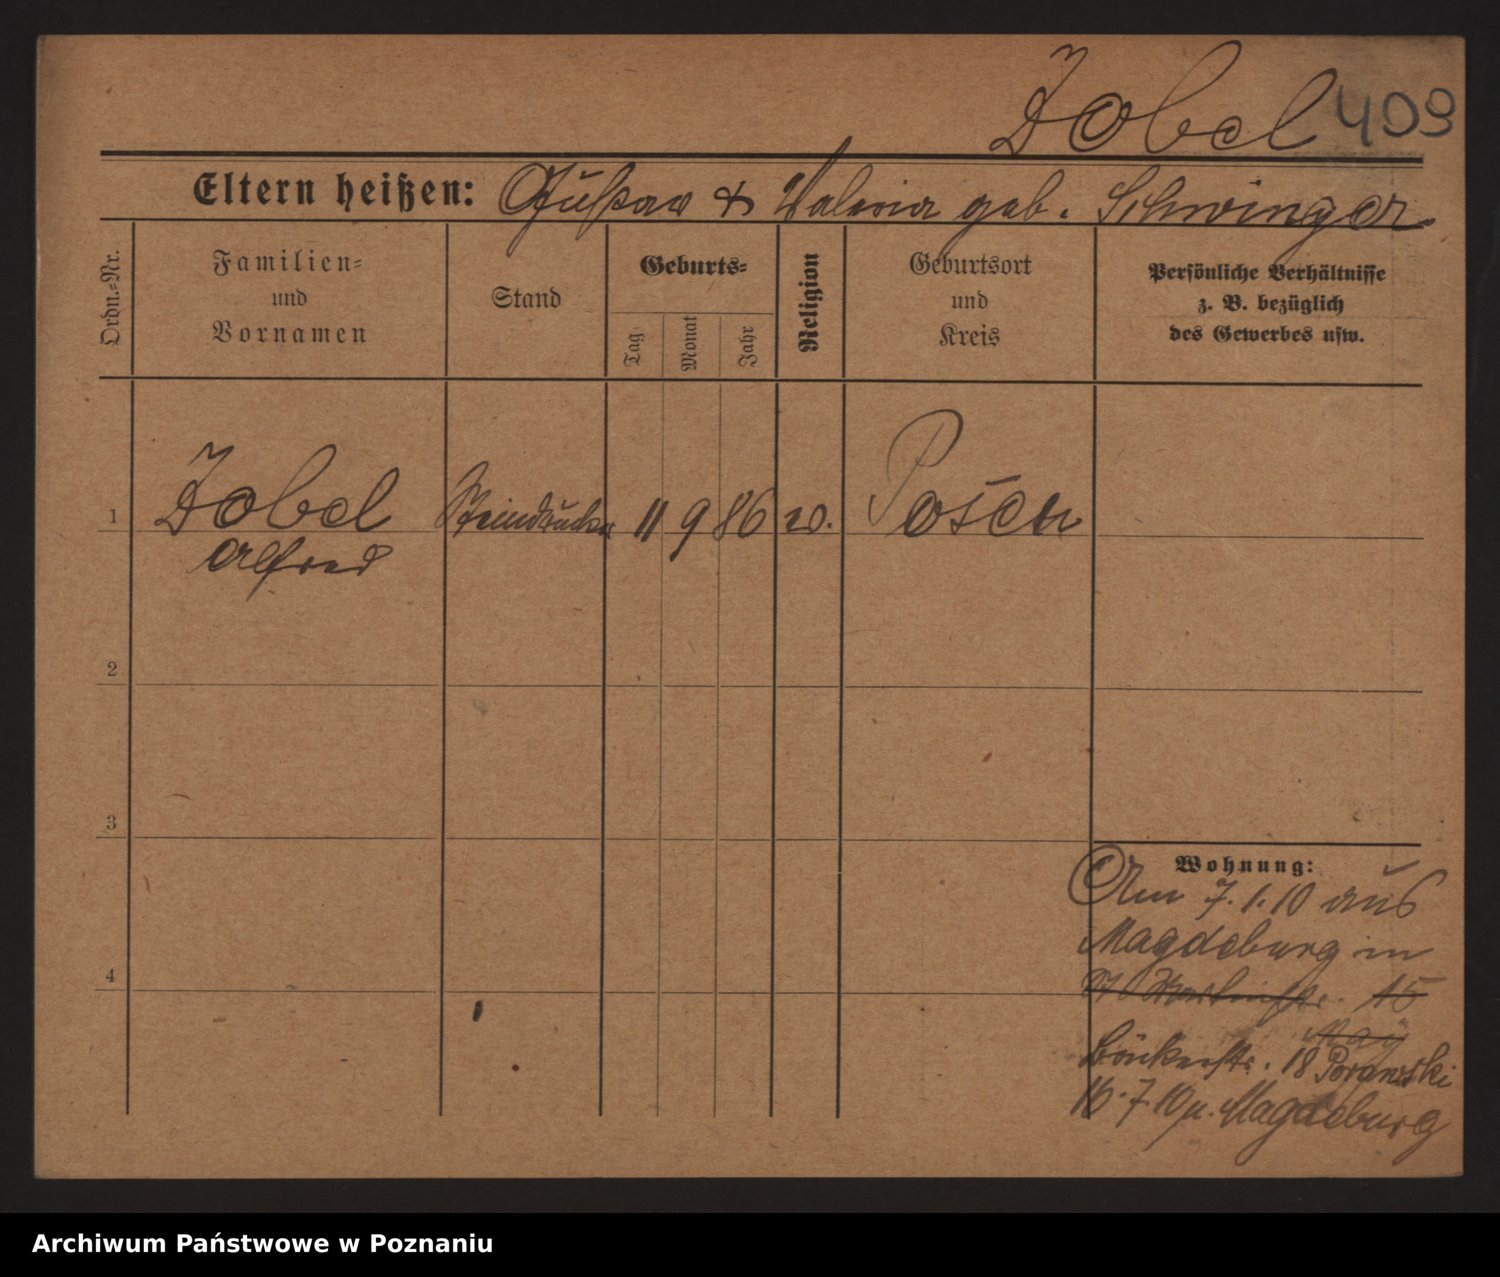 Zobel 409
Eltern heißen: Gustav & Valeria geb. Schwinger
Ordn.=Nr.
Familien=
und
Vornamen
Stand
Geburts=
Tag
Monat
Jahr
Religion
Geburtsort
und
Kreis
Persönliche Verhältnisse
z. B. bezüglich
des Gewerbes usw.
1 Zobel Steindrucker 11 9 86 ev. Posen
Alfred
2
3
Wohnung:
Am 7.1.10 aus
Magdeburg in
4 St Martinstr. 15
May
Bäckerstr. 18
16.7.10 n. Magdeburg
Archiwum Państwowe w Poznaniu